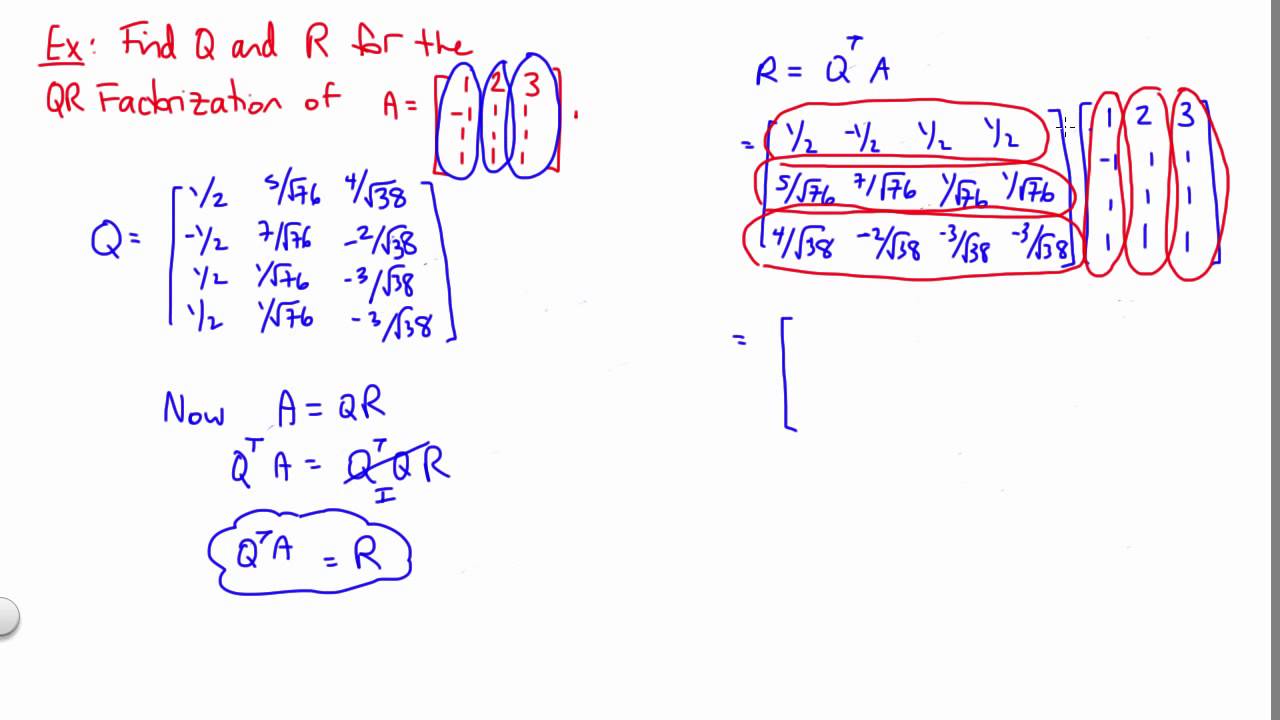 Ex: Find Q and R for the
QR Factorization of A = [ 1 2 3
-1 1 1
1 1 1
1 1 1 ] .
Q = [ 1/2 5/√76 4/√38
-1/2 7/√76 -2/√38
1/2 1/√76 -3/√38
1/2 1/√76 -3/√38 ]
Now A = QR
QᵀA = QᵀQ R
I
QᵀA = R
R = QᵀA
= [ 1/2 -1/2 1/2 1/2 ] [ 1 2 3
5/√76 7/√76 1/√76 1/√76 -1 1 1
4/√38 -2/√38 -3/√38 -3/√38 1 1 1
1 1 1 ]
= [